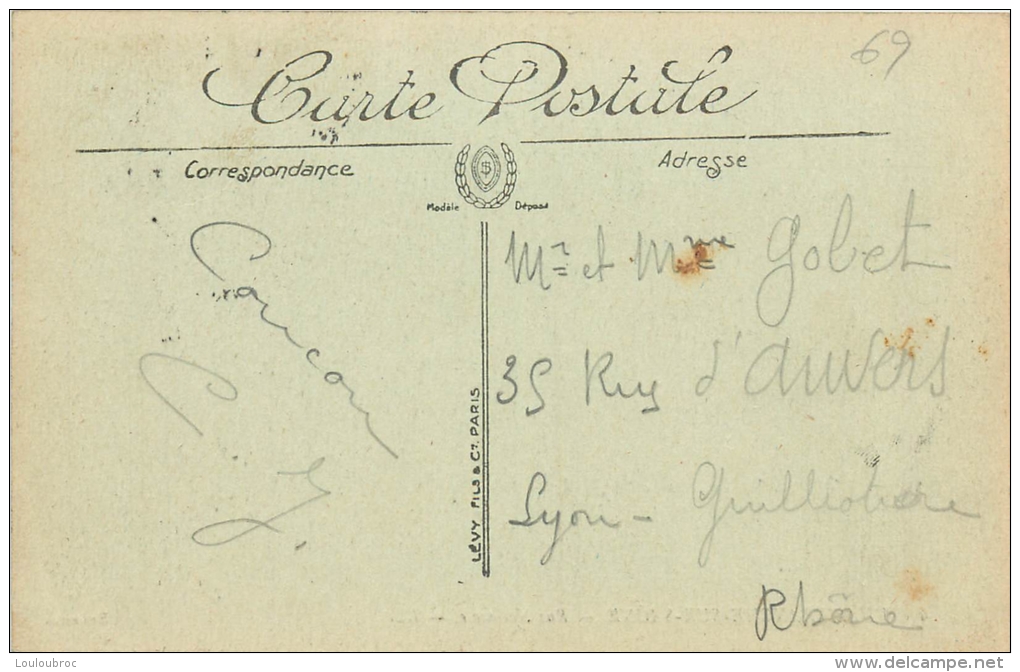 69
Carte Postale
Correspondance
Adresse
Modèle Déposé
Mr et Mme Gobet
35 Rue d'anvers
Lyon - Guillotière
Rhône
LÉVY FILS & Cie. PARIS
Louloubroc
delcampe.net